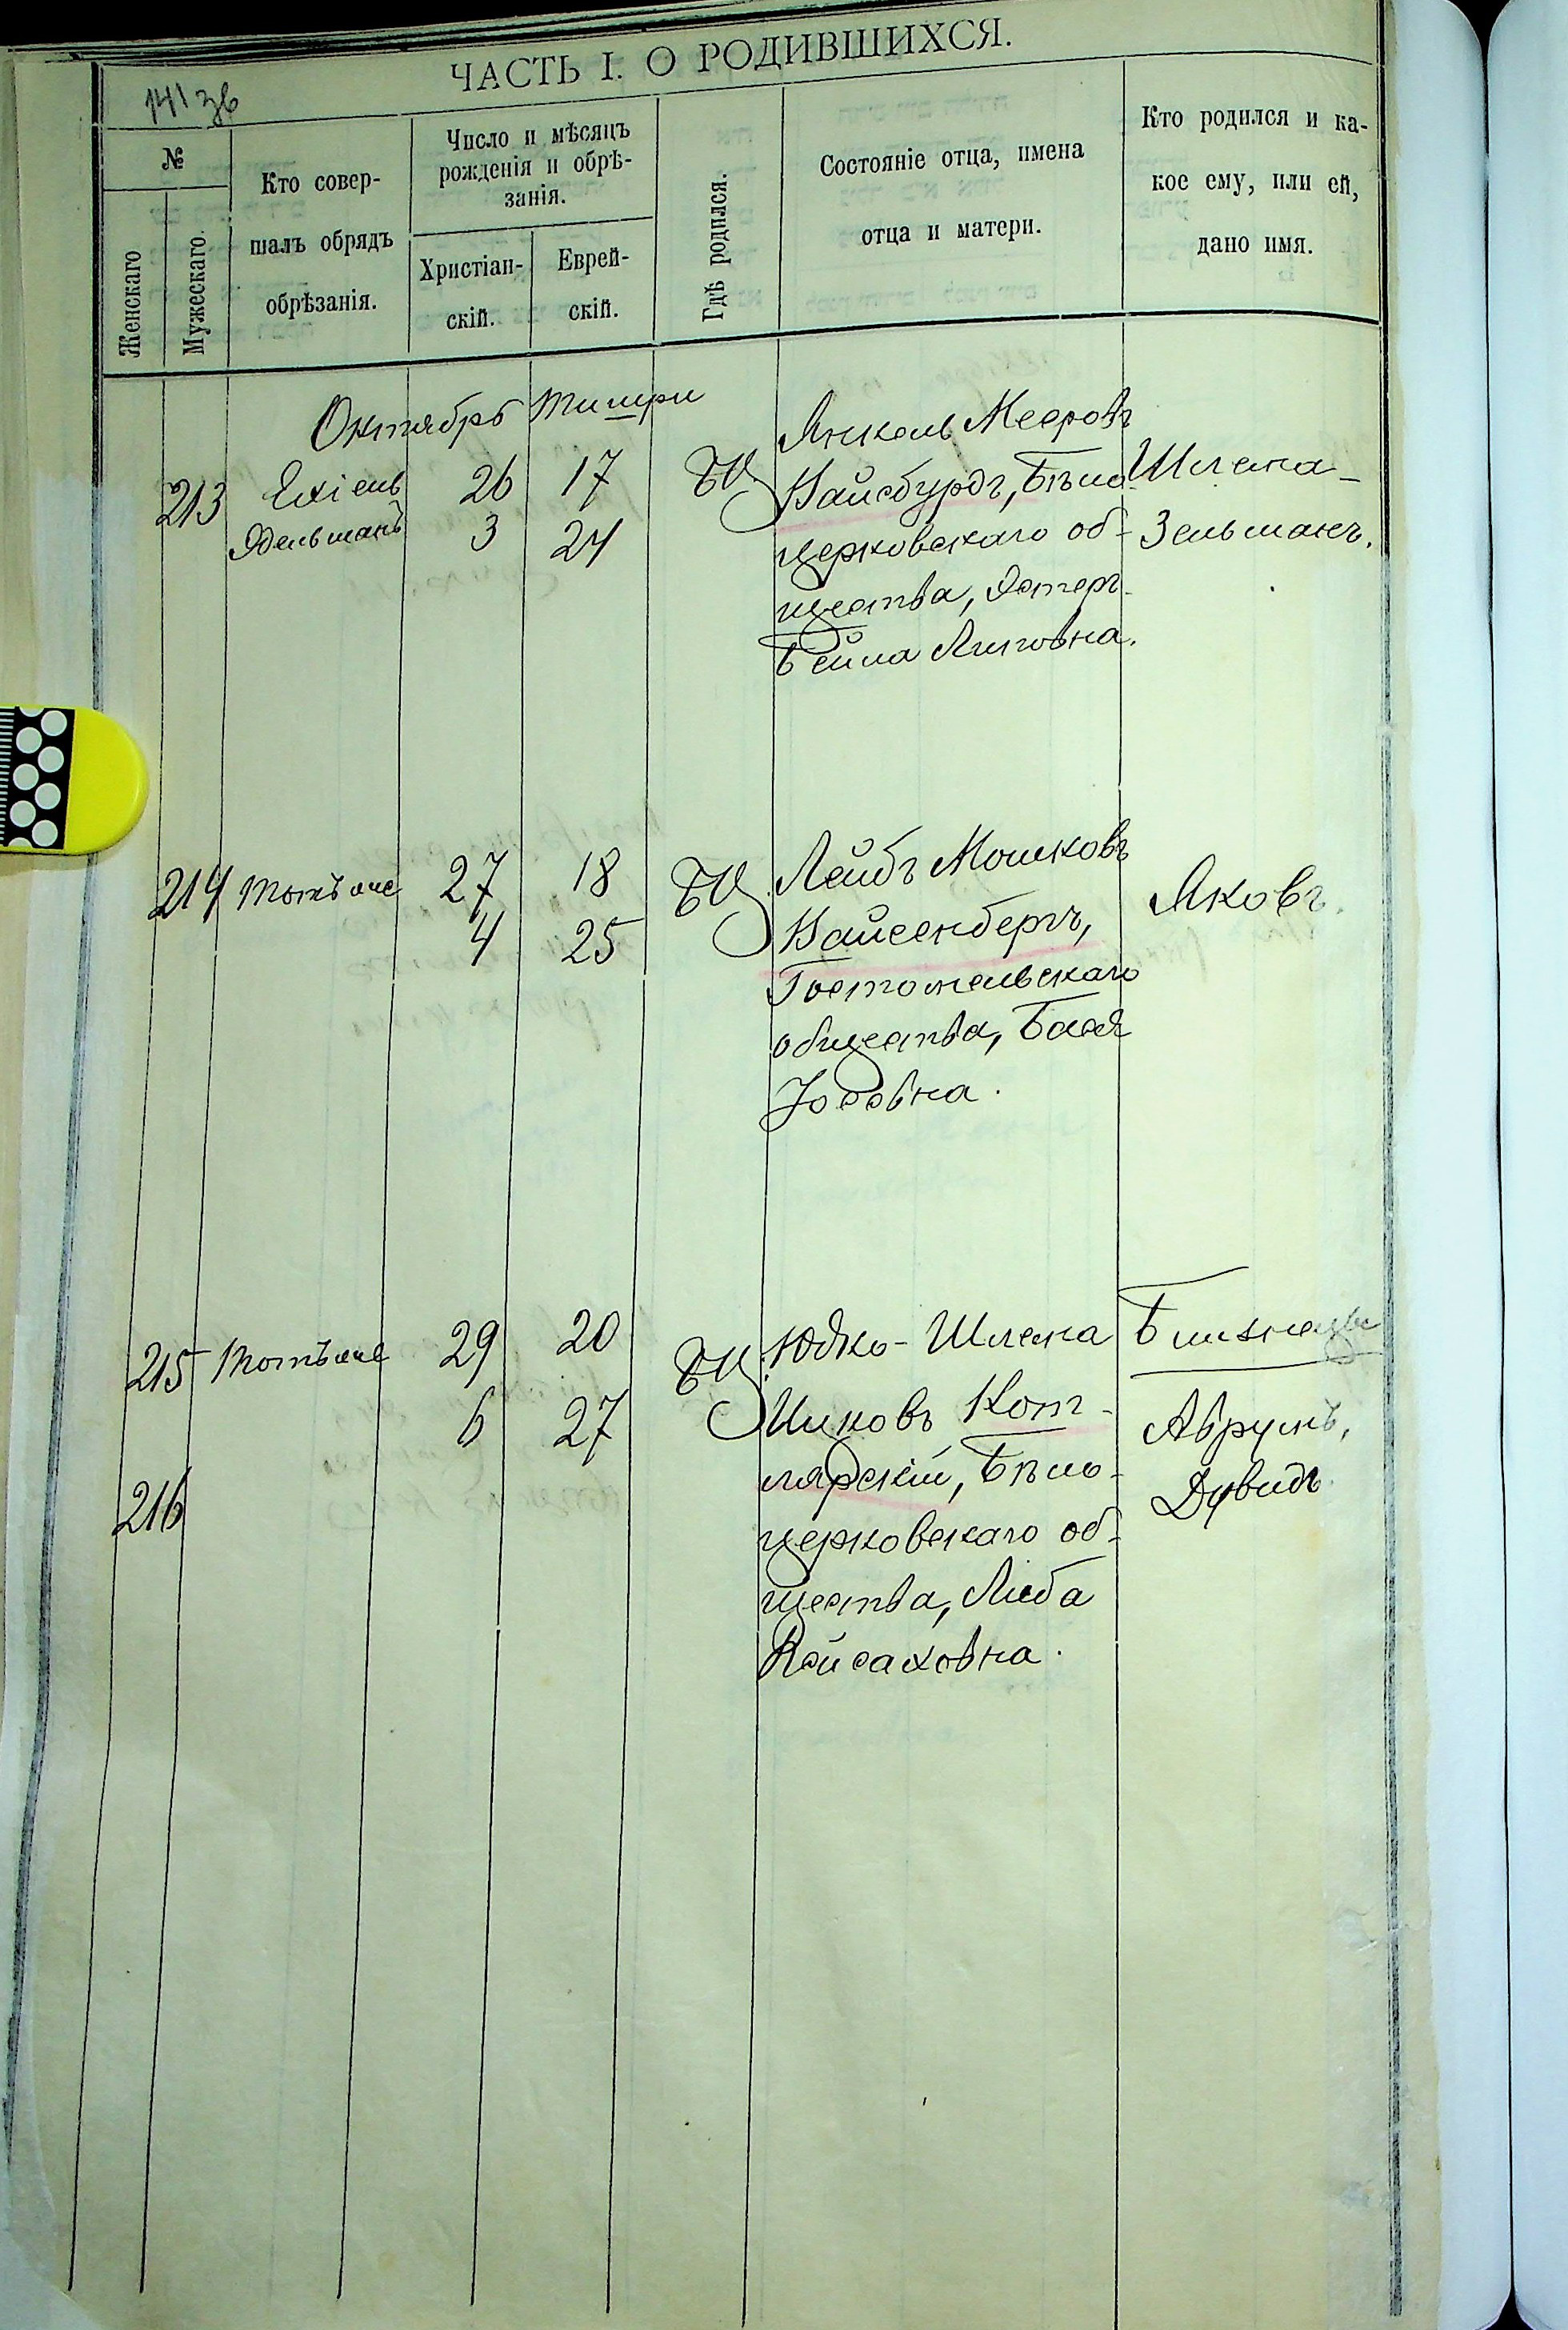 ЧАСТЬ I. О РОДИВШИХСЯ.
141 зв
№
Женскаго
Мужескаго.
Кто совер-
шалъ обрядъ
обрѣзанія.
Число и мѣсяцъ
рожденія и обрѣ-
занія.
Христіан-
скій.
Еврей-
скій.
Гдѣ родился.
Состояніе отца, имена
отца и матери.
Кто родился и ка-
кое ему, или ей,
дано имя.
Октябрь Тишри
213 Ехіель 26 17 БЦ
Эдельманъ 3 24
Янкель Мееровъ
Вайсбурдъ, Бѣло-
церковскаго об-
щества, Эстеръ-
Бейла Ициковна.
Шлема-
Зельманъ.
214 Тотъ же 27 18 БЦ
4 25
Лейбъ Мошковъ
Вайсенбергъ,
Гостомельскаго
общества, Бася
Іосовна.
Яковъ.
215 Тотъ же 29 20 БЦ
6 27
216
Юдко-Шлема
Ицковъ Кот-
лярскій, Бѣло-
церковскаго об-
щества, Либа
Пейсаховна.
Близнецы
Аврумъ,
Дувидъ.